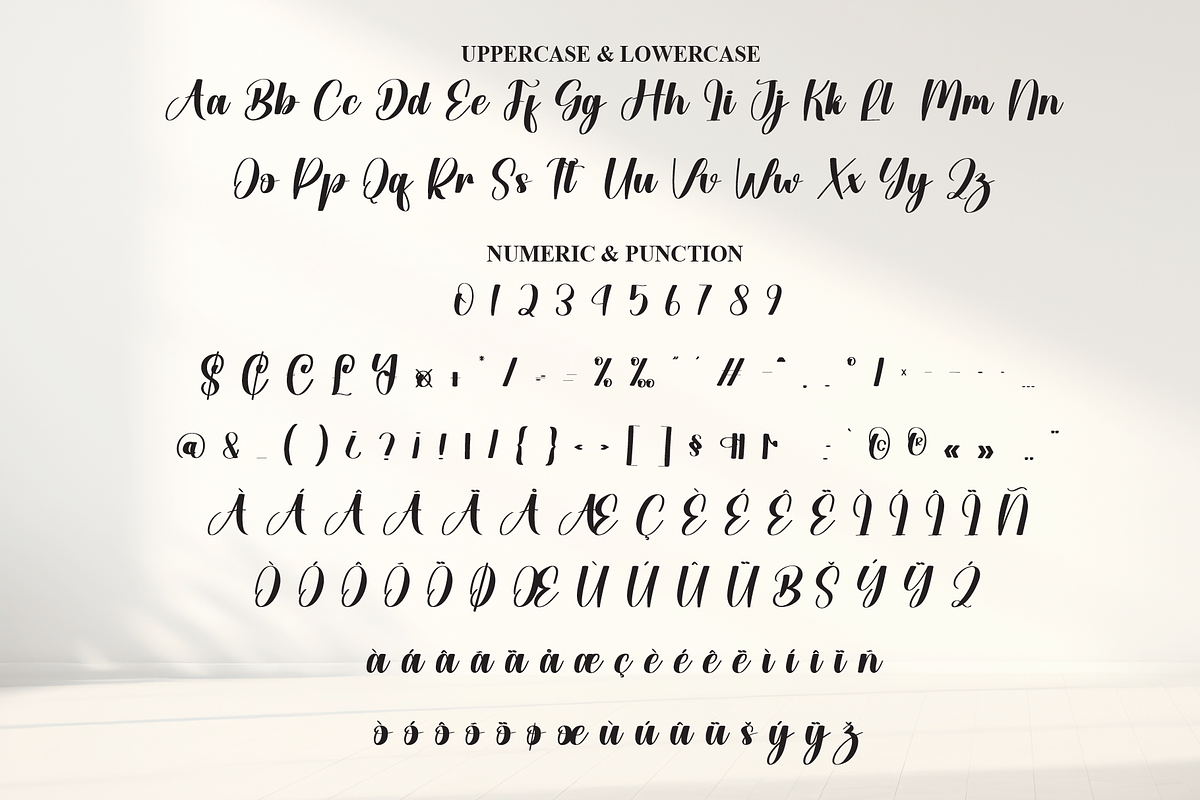 UPPERCASE & LOWERCASE
Aa Bb Cc Dd Ee Ff Gg Hh Ii Jj Kk Ll Mm Nn
Oo Pp Qq Rr Ss Tt Uu Vv Ww Xx Yy Zz
NUMERIC & PUNCTION
0 1 2 3 4 5 6 7 8 9
$ ₵ C £ ¥ ¤ + * / = % ‰ " ' # ¯ ˆ . ° / × – — - - …
@ & _ ( ) ¿ ? ¡ ! | / { } ‹ › [ ] § ¶ : ` © ® « » ¨
À Á Â Ã Ä Å Æ Ç È É Ê Ë Ì Í Î Ï Ñ
Ò Ó Ô Õ Ö Ø Œ Ù Ú Û Ü B Š Ý Ÿ Ž
à á â ã ä å æ ç è é ê ë ì í î ï ñ
ò ó ô õ ö ø œ ù ú û ü š ý ÿ ž